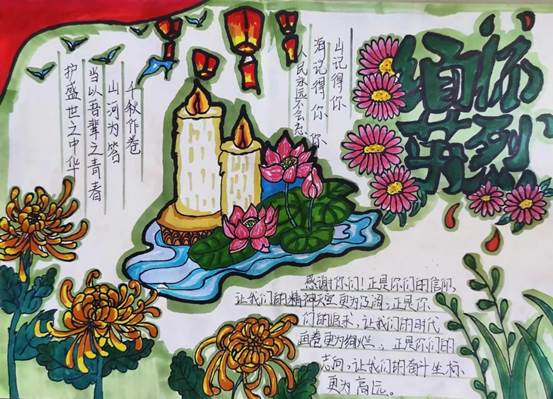 缅怀
英烈
山记得你
海记得你
人民永远不会忘你
千秋作卷
山河为答
当以吾辈之青春
护盛世之中华
感谢你们！正是你们的信仰，
让我们的精神天空更为辽阔；正是你
们的追求，让我们的时代
画卷更为绚烂。正是你们的
志向，让我们的奋斗坐标
更为高远。